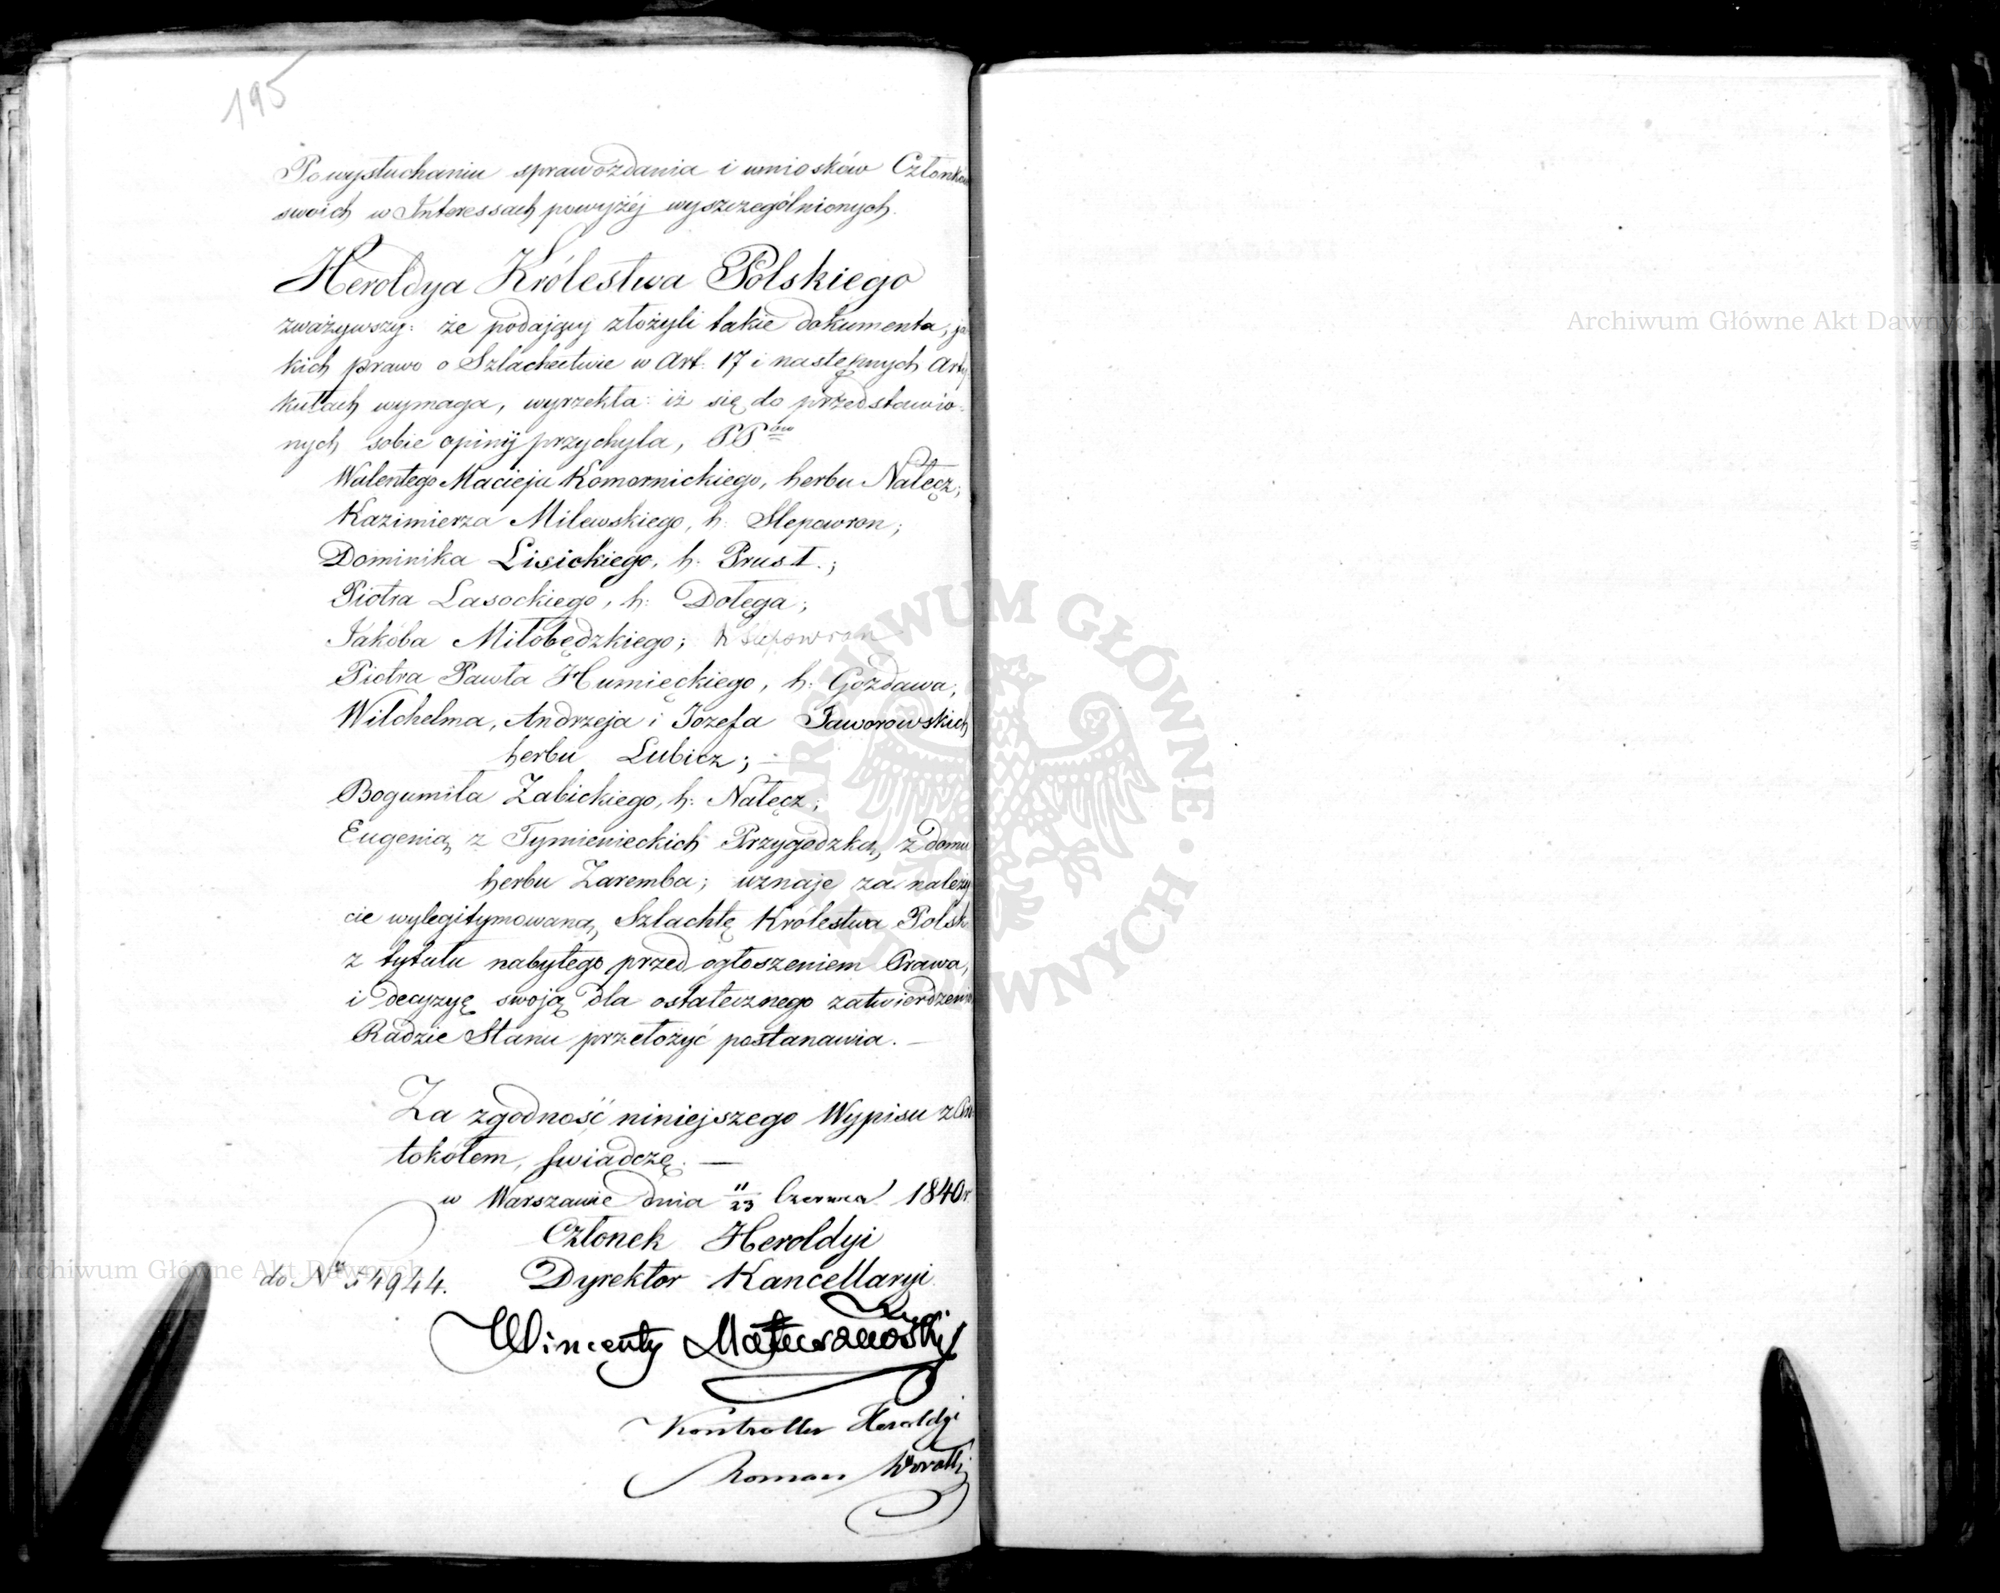 195
Po wysłuchaniu sprawozdania i wniosków Członków
swoich w Interessach powyżéj wyszczególnionych.
Heroldya Królestwa Polskiego
zważywszy: że podający złożyli takie dokumenta, ja-
kich prawo o Szlachectwie w Art: 17 i następnych Arty-
kułach wymaga, wyrzekła: iż się do przedstawio-
nych sobie opinij przychyla, PP ów
Walentego Macieja Komornickiego, herbu Nałęcz;
Kazimierza Milewskiego, h: Slepowron;
Dominika Lisickiego, h: Prus I.;
Piotra Lasockiego, h: Dołęga;
Jakóba Miłobędzkiego; h Slepowron
Piotra Pawła Humięckiego, h: Gozdawa;
Wilchelma, Andrzeja i Jozefa Jaworowskich
herbu Lubicz;
Bogumiła Zabickiego, h: Nałęcz;
Eugenią z Tymienieckich Przygodzką, z domu
herbu Zaremba; uznaje za należy-
cie wylegitymowaną Szlachtę Królestwa Polsk:
z tytułu nabytego przed ogłoszeniem Prawa,
i decyzyę swoją dla ostatecznego zatwierdzenia
Radzie Stanu przełożyć postanawia. —
Za zgodność niniejszego Wypisu z Pro-
tokółem, świadczę. —
w Warszawie dnia 11/23 Czerwca 1840 r.
Członek Heroldyi
do Nru 54944. Dyrektor Kancellaryi
Wincenty Matuszewski
Kontroller Heroldyi
Roman
Archiwum Główne Akt Dawnych
Archiwum Główne Akt Dawnych
ARCHIWUM GŁÓWNE AKT DAWNYCH